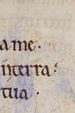 a me ·
in terra
tua ·